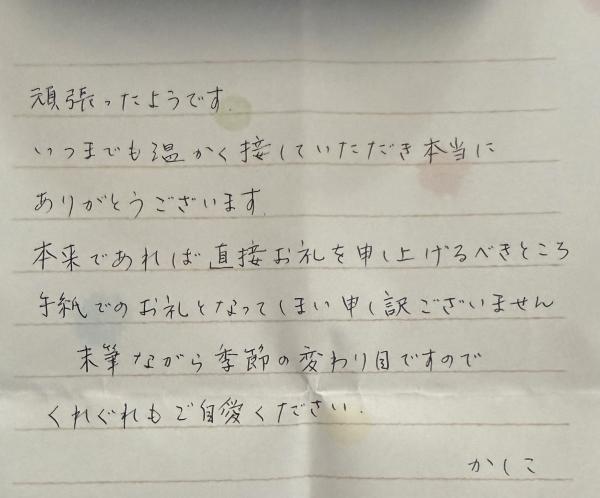 頑張ったようです.
いつまでも温かく接していただき本当に
ありがとうございます.
本来であれば直接お礼を申し上げるべきところ
手紙でのお礼となってしまい申し訳ございません
末筆ながら季節の変わり目ですので
くれぐれもご自愛ください.
かしこ